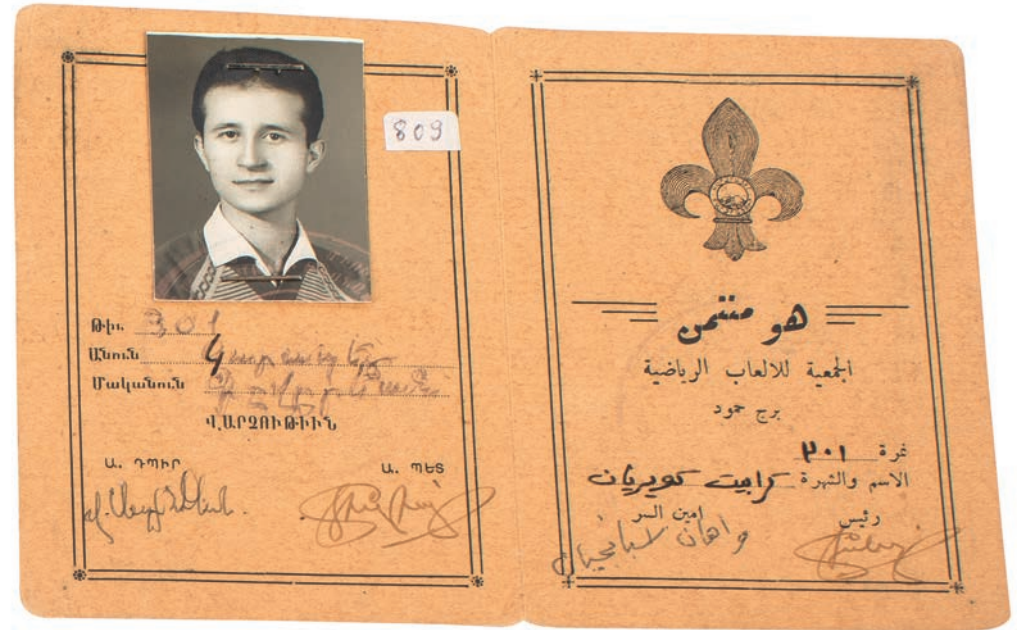 809
Թիւ 301
Անուն Կարապետ
Մականուն
ՎԱՐՉՈՒԹԻՒՆ
Ա. ԴՊԻՐ Ա. ՊԵՏ
هو منتمن
الجمعية للالعاب الرياضية
برج حمود
نمرة ٣٠١
الاسم والشهرة كرابيت كويريان
امين السر رئيس
واهان